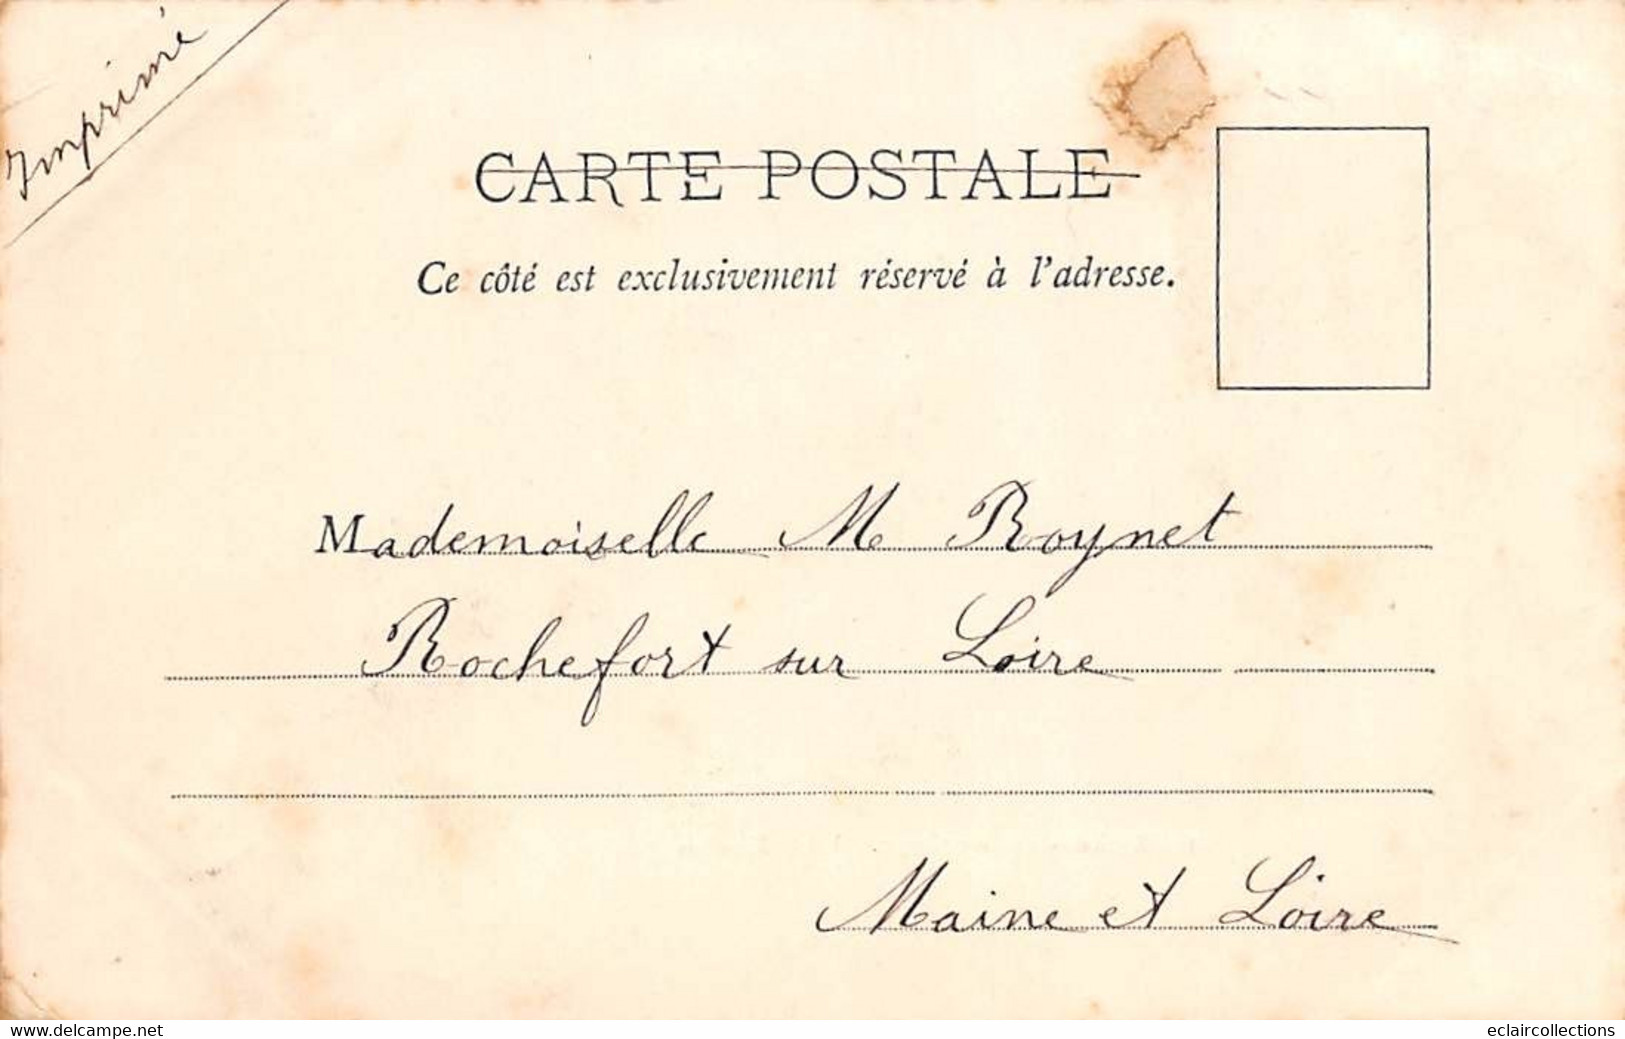 Imprimé
CARTE POSTALE
Ce côté est exclusivement réservé à l'adresse.
Mademoiselle M Roynet
Rochefort sur Loire
Maine et Loire
www.delcampe.net
eclaircollections